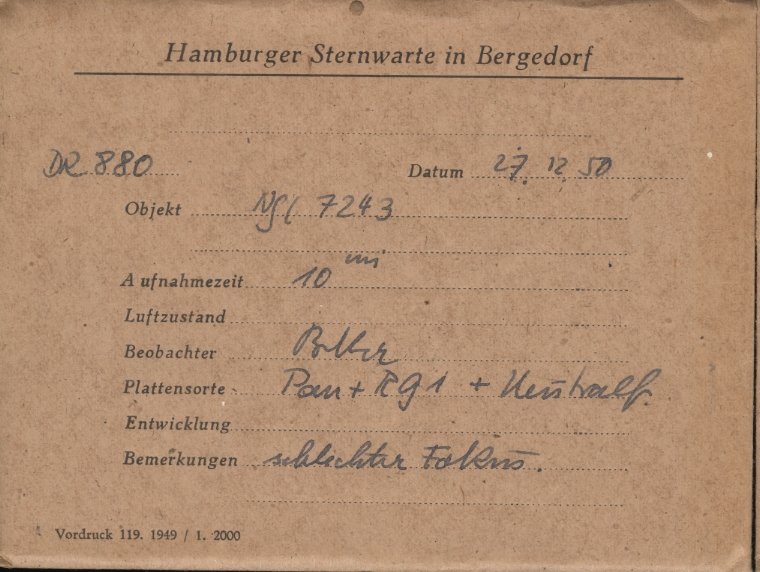 Hamburger Sternwarte in Bergedorf
DR 880 Datum 27. 12. 50
Objekt NGC 7243
Aufnahmezeit 10 min
Luftzustand
Beobachter
Plattensorte Pan + RG1 + Neutralf.
Entwicklung
Bemerkungen schlechter Fokus.
Vordruck 119. 1949 / 1. 2000